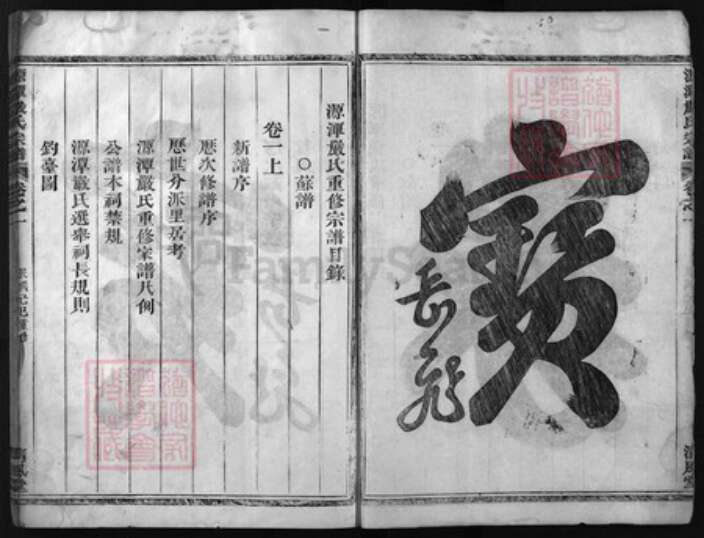 寶
長虹
源潭嚴氏重修宗譜目錄
〇蘇譜
卷一上
新譜序
歷次修譜序
歷世分派里居考
源潭嚴氏重修宗譜凡例
公譜本祠禁規
源潭嚴氏選舉祠長規則
釣臺圖
源潭嚴氏宗譜 卷之一
清風堂
FamilySearch